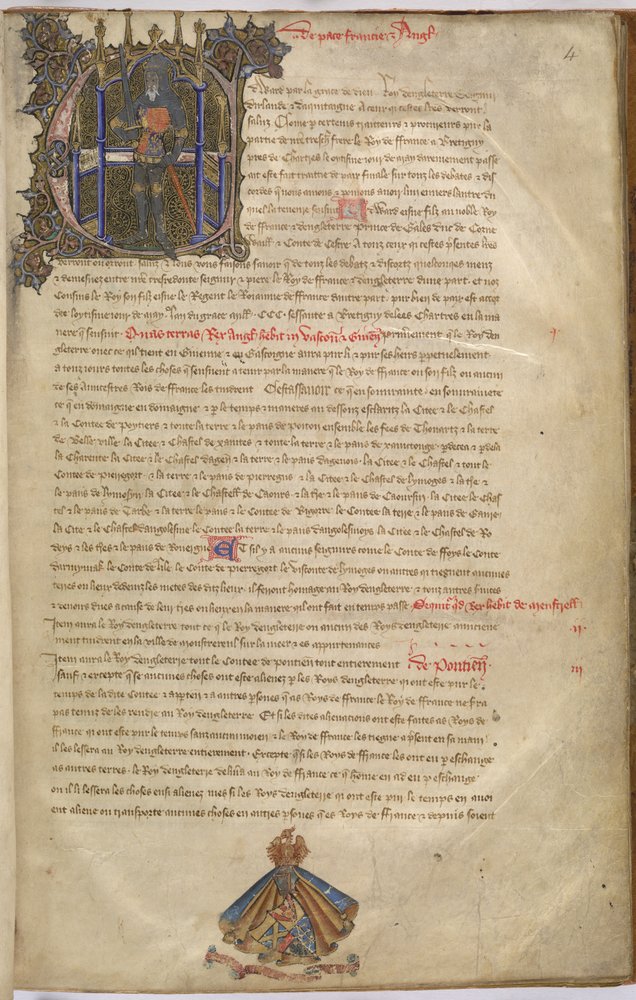 De pace Francie & Angl
4
Edward par la grace de dieu Roy dengleterre Seignur
dirlande & daquitaigne A touz qi cestes lres verront
saluz Come p certeins traiteurs & procureurs pur la
partie de nre tresch frere le Roy de ffrance a Bretigny
pres de Chartres le oytisme iour de may darreinement passe
ait este fait traitie de pair finale sur tous les debates & dis
cordes q nous avions & pouions avoir lun envers lautre du
quel la tenure sensuit Edward eisne filz au noble Roy
de ffrance & dengleterre Prince de Gales duc de Corne
waill & Conte de Cestre A touz ceux qi cestes psentes lres
verront ou orront saluz & Nous vous faisons savoir q de touz les debatz & distortz quelconqes meuz
& demesnez entre nre tresredoute seignur & piere le Roy de ffrance & dengleterre dune part et noz
Cousins le Roy son filz eisne le Regent le Roiaume de ffrance dautre part pur bien de pair est accor
dee loytisme iour de may lan du grace mill CCC sessante a Bretigny delees Chartres en la ma
nere q sensuit Quas terras Rex Angl hebit in Vascon & Guien Primerement qe le Roy den
gleterre ovec ce qil tient en Guienne & en Gascoigne aura pur li & pur ses heirs ppetuelement
a touz iours toutes les choses q sensuent a tenir par la manere q le Roy de ffrance ou son filz ou aucun
de ses Auncestres Rois de ffrance les tindrent Cestassavoir ce q en sovrainte en sovrainete
ce q en domaigne en domaigne & p le temps & maneres au dessouz esclartz La Citee & le Chastel
& la Contee de Poyters & toute la terre & le pais de poitou ensemble les fees de Thouartz & la terre
de Belle ville la Citee & Chastel de xantes & toute la terre & le pais de xantonge pdecea & pdela
la Charente La Citee & le Chastel dagen & la terre & le pais dagenois La Citee & le Chastel & tout le
Contee de pieregort & la terre & le pais de pierregus & la Citee & le Chastel de lymoges & la the &
le pais de lymosyn la Citee & le Chastell de Caours & la the & le pais de Caoursin la Citee le Chas
tel & le pais de Tarbe & la terre le pais & le Contee de Bigorre le Contee la terre & le pais de Gaure
la Cite & le Chastel dangolesme le Contee la terre & le pais dangolesmoys la Citee & le Chastel de Ro
deys & les thes & le pais de Rouergue Et sil y a aucuns seignurs come le Conte de ffoys le Conte
darmynak le Conte de lile le Conte de pierregort le visconte de lymoges ou autres qi tiegnent aucunes
terres ou lieux dedeinz les metes des ditz lieux il feront homage au Roy dengleterre & touz autres services
& devoirs dues a cause de leur tres ou lieux en la manere qil ont fait en temps passe Sequitr qd Rex hebit de Menstrell
Item aura le Roy dengleterre tout ce q le Roy dengleterre ou aucun des Roys dengleterre anciene
ment tindrent en la ville de monstrereul sur la meer & es appurtenances
ij
Item aura le Roy dengleterre tout le Contee de pontieu tout entierement de Pontieu
iij
sauf & excepte q se aucunes choses ont este alienez p les Roys dengleterre qi ont este pur le
temps de la dite Contee & apptenances a autres psones q as Roys de ffrance le Roy de ffrance ne sra
pas tenuz de les rendre au Roy dengleterre Et si les dites alienations ont este faites as Roys de
ffrance qi ont este pur le temps sanz aucun moien & le Roy de ffrance les tiegne a psent en sa main
il les lessera au Roy dengleterre entierement Excepte q si les Roys de ffrance les ont eu p eschange
as autres terres le Roy dengleterre delivra au Roy de ffrance ce q home en ad eu p eschange
ou il li lessera les choses ensi alienez mes si les Roys dengleterre qi ont este pur le temps en aucun
ent aliene ou transporte aucunes choses en autres psones q es Roys de ffrance & depuis soient